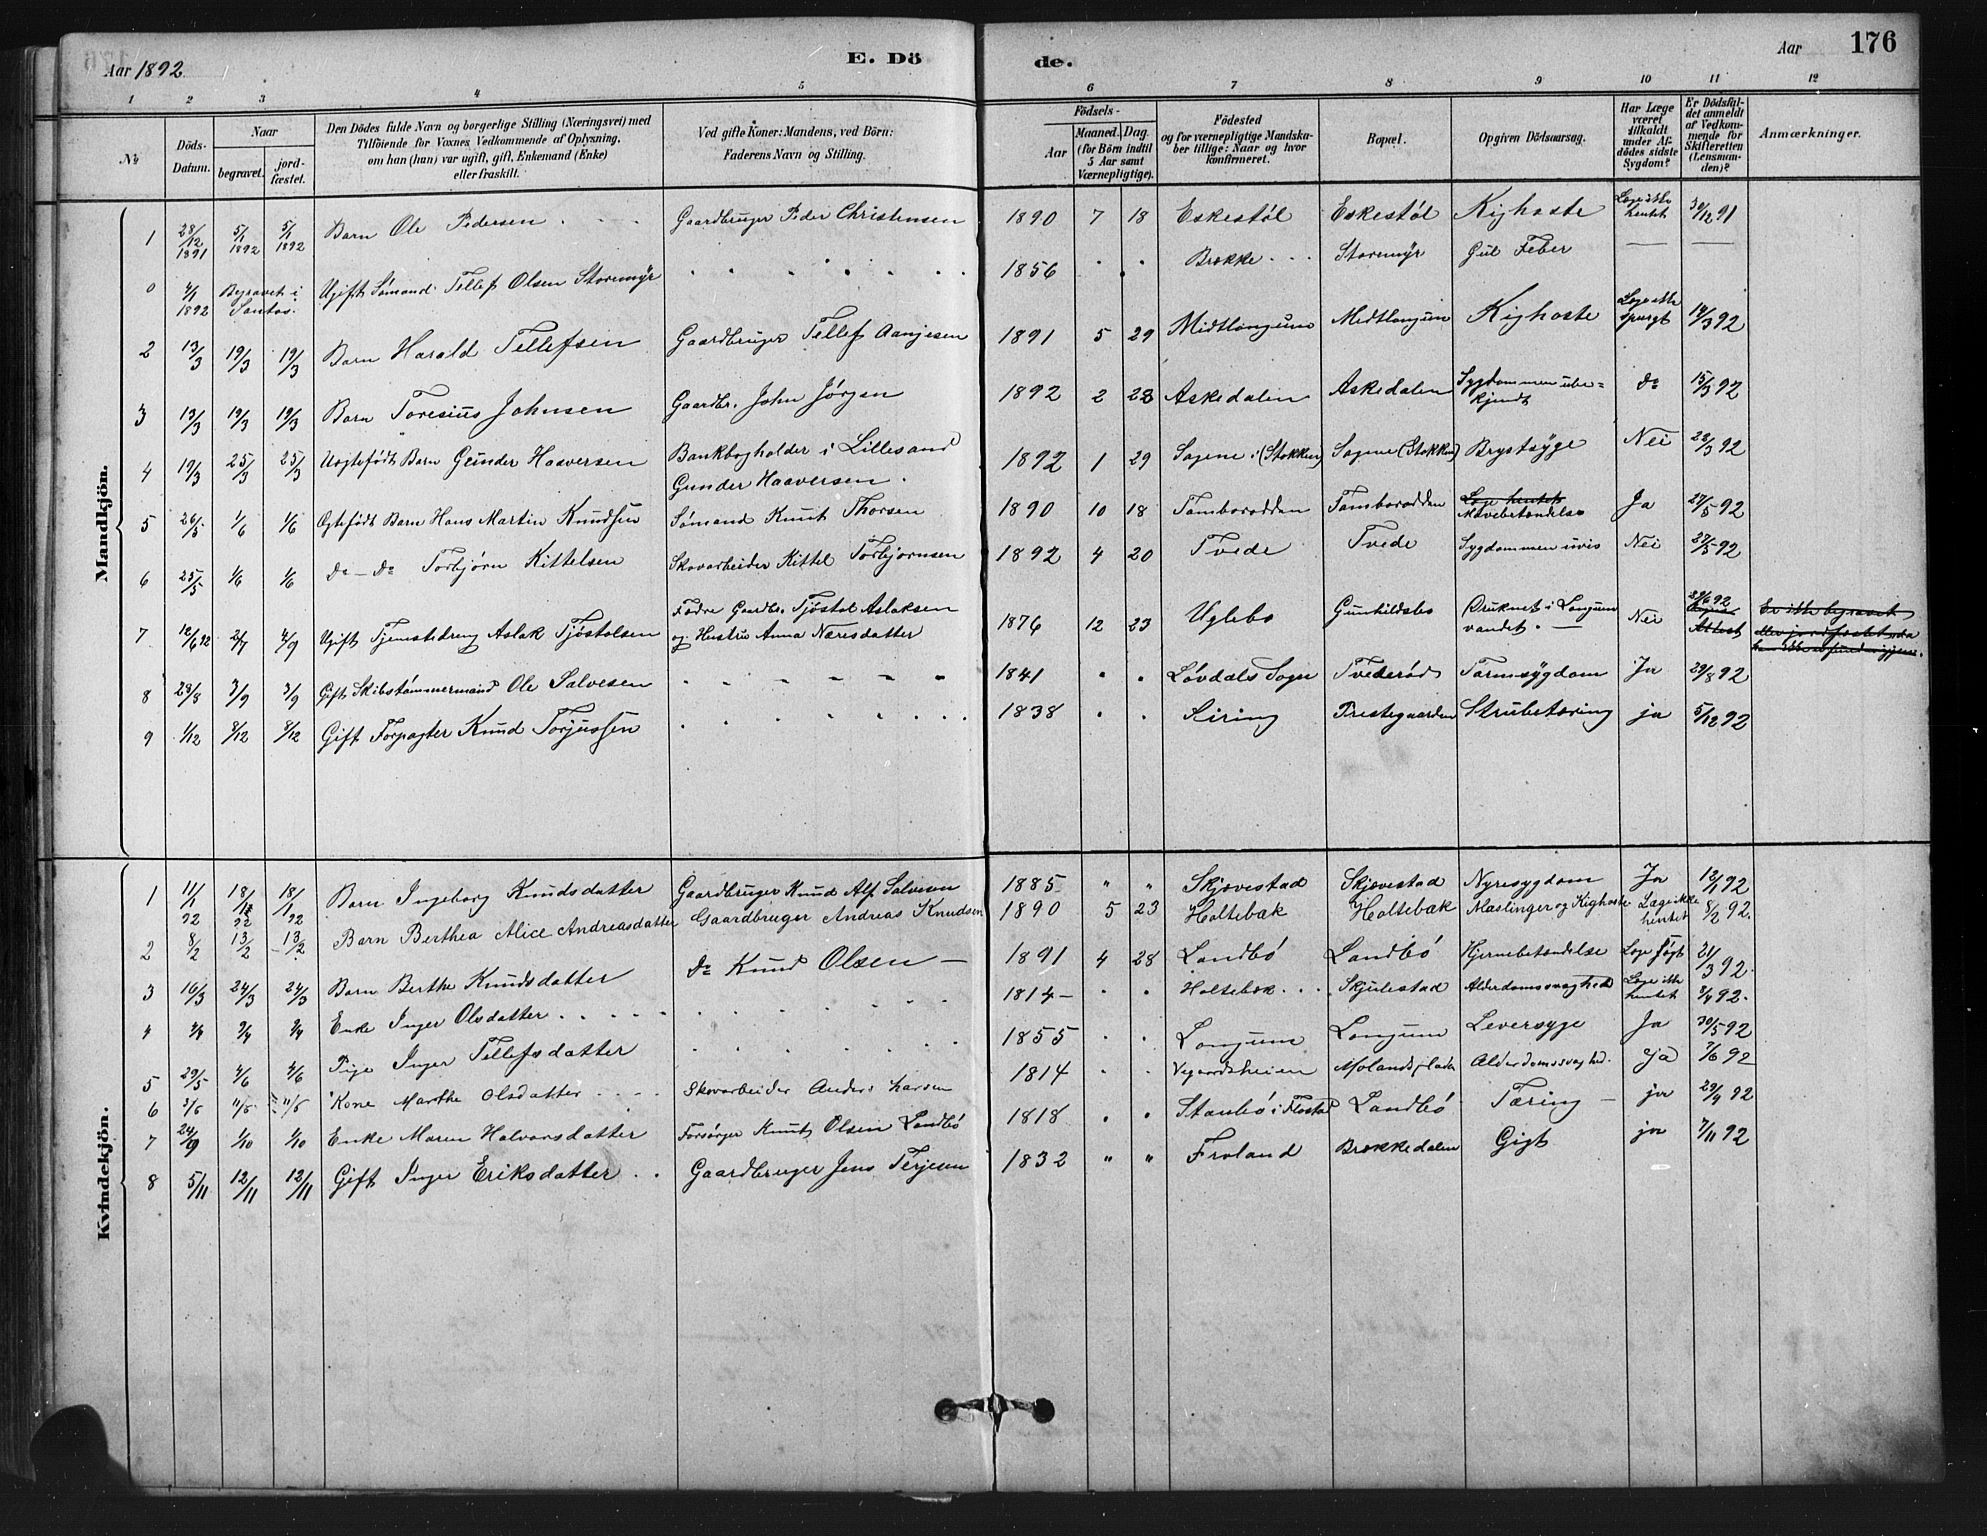 Aar 1892
E. Dö
de.
Aar
176
1 2 3 4 5 6 7 8 9 10 11 12
№
Döds-Datum.
Naar
begravet.
jord-fæstet.
Den Dödes fulde Navn og borgerlige Stilling (Næringsvei) med
Tilföiende for Voxnes Vedkommende af Oplysning,
om han (hun) var ugift, gift, Enkemand (Enke)
eller fraskilt.
Ved gifte Koner: Mandens, ved Börn:
Faderens Navn og Stilling.
Födsels-
Aar
Maaned. Dag.
(for Börn indtil
5 Aar samt
Værnepligtige).
Födested
og for værnepligtige Mandska-
ber tillige: Naar og hvor
konfirmeret.
Bopæl.
Opgiven Dödsaarsag.
Har Læge
været
tilkaldt
under Af-
dödes sidste
Sygdom?
Er Dödsfal-
det anmeldt
af Vedkom-
mende for
Skifteretten
(Lensman-
den)?
Anmærkninger.
Mandkjön.
1 28/12 1891 5/1 1892 5/1 1892 Barn Ole Pedersen Gaardbruger Peder Christensen 1890 7 18 Eskestøl Eskestøl Kighoste Læge ikke hentet 30/12 91
0 4/1 1892 Begravet i Santos. Ugift Sømand Tellef Olsen Storemyr 1856 " " Brække Storemyr Gul Feber —
2 13/3 19/3 19/3 Barn Harald Tellefsen Gaardbruger Tellef Aanjesen 1891 5 29 Midtlongum Midtlongum Kighoste Læge ikke spurgt 14/3 92
3 13/3 19/3 19/3 Barn Toresius Johnsen Gaardbr. John Jørgen 1892 2 23 Askedalen Askedalen Sygdommen ube=kjendt do 15/3 92
4 19/3 25/3 25/3 Uægtefødt Barn Gunder Haaversen Bankbogholder i Lillesand
Gunder Haaversen. 1892 1 29 Sagene i (Stokken) Sagene (Stokken) Brystsyge Nei 22/3 92
5 26/5 1/6 1/6 Ægtefødt Barn Hans Martin Knudsen Sømand Knut Thorsen 1890 10 18 Tamborodden Tamborodden Læge hentet Mavebetændelse Ja 27/5 92
6 25/5 1/6 1/6 do — do Torbjørn Kittelsen Skovarbeider Kittel Torbjørnsen 1892 4 20 Tvede Tvede Sygdommen uvis Nei 27/5 92
7 12/6 92 2/7 4/9 Ugift Tjenestedreng Aslak Tjøstolsen Fædre Gaardbr. Tjøstol Aslaksen
og Hustru Anna Næresdatter 1876 12 23 Uglebo Gunhildsbo Druknet i Longum vandet. — Nei 29/6 92 Attest Er ikke begravet eller jordfæstet, da
8 23/8 3/9 3/9 Gift Skibstømmermand Ole Salvesen 1841 " " Løvdals Sogn Tvederød Tarmsygdom Ja 29/8 92
9 1/12 8/12 8/12 Gift Forpagter Knud Torjussen 1838 " " Kiring Prestegaarden Strubetæring ja 5/12 92
Kvindekjön.
1 11/1 92 18/1 92 18/1 92 Barn Ingeborg Knudsdatter Gaardbruger Knud Alf Salvesen 1885 " " Skjævestad Skjævestad Nyresygdom Ja 12/1 92
2 8/2 13/2 13/2 Barn Berthea Alice Andreasdatter Gaardbruger Andreas Knudsen 1890 5 23 Holtebæk Holtebæk Mæslinger og Kighoste Læge ikke hentet 8/2 92.
3 16/3 24/3 24/3 Barn Berthe Knudsdatter do Knud Olsen — 1891 4 28 Landbö Landbö Hjernebetændelse Læge søgt 21/3 92.
4 2/4 9/4 9/4 Enke Inger Olsdatter 1814 — " " Holtebæk Skjulestad Alderdomssvaghed Læge ikke hentet 8/4 92.
5 29/5 4/6 4/6 Pige Inger Tellefsdatter 1855 " " Longum Longum Leversyge Ja 30/5 92
6 3/6 11/6 11/6 Kone Marthe Olsdatter Skovarbeider Anders Larsen 1814 " " Vegardsheien Molandsladen Alderdomssvaghed. Ja 7/6 92
7 24/9 1/10 1/10 Enke Maren Halvorsdatter Forsörger Knut Olsen Landbö 1818 " " Staubö i Flostad Landbö Tæring — ja 29/9 92
8 5/11 12/11 12/11 Gift Inger Eriksdatter Gaardbruger Jens Terjesen 1832 " " Froland Brækkedalen Gigt ja 7/11 92